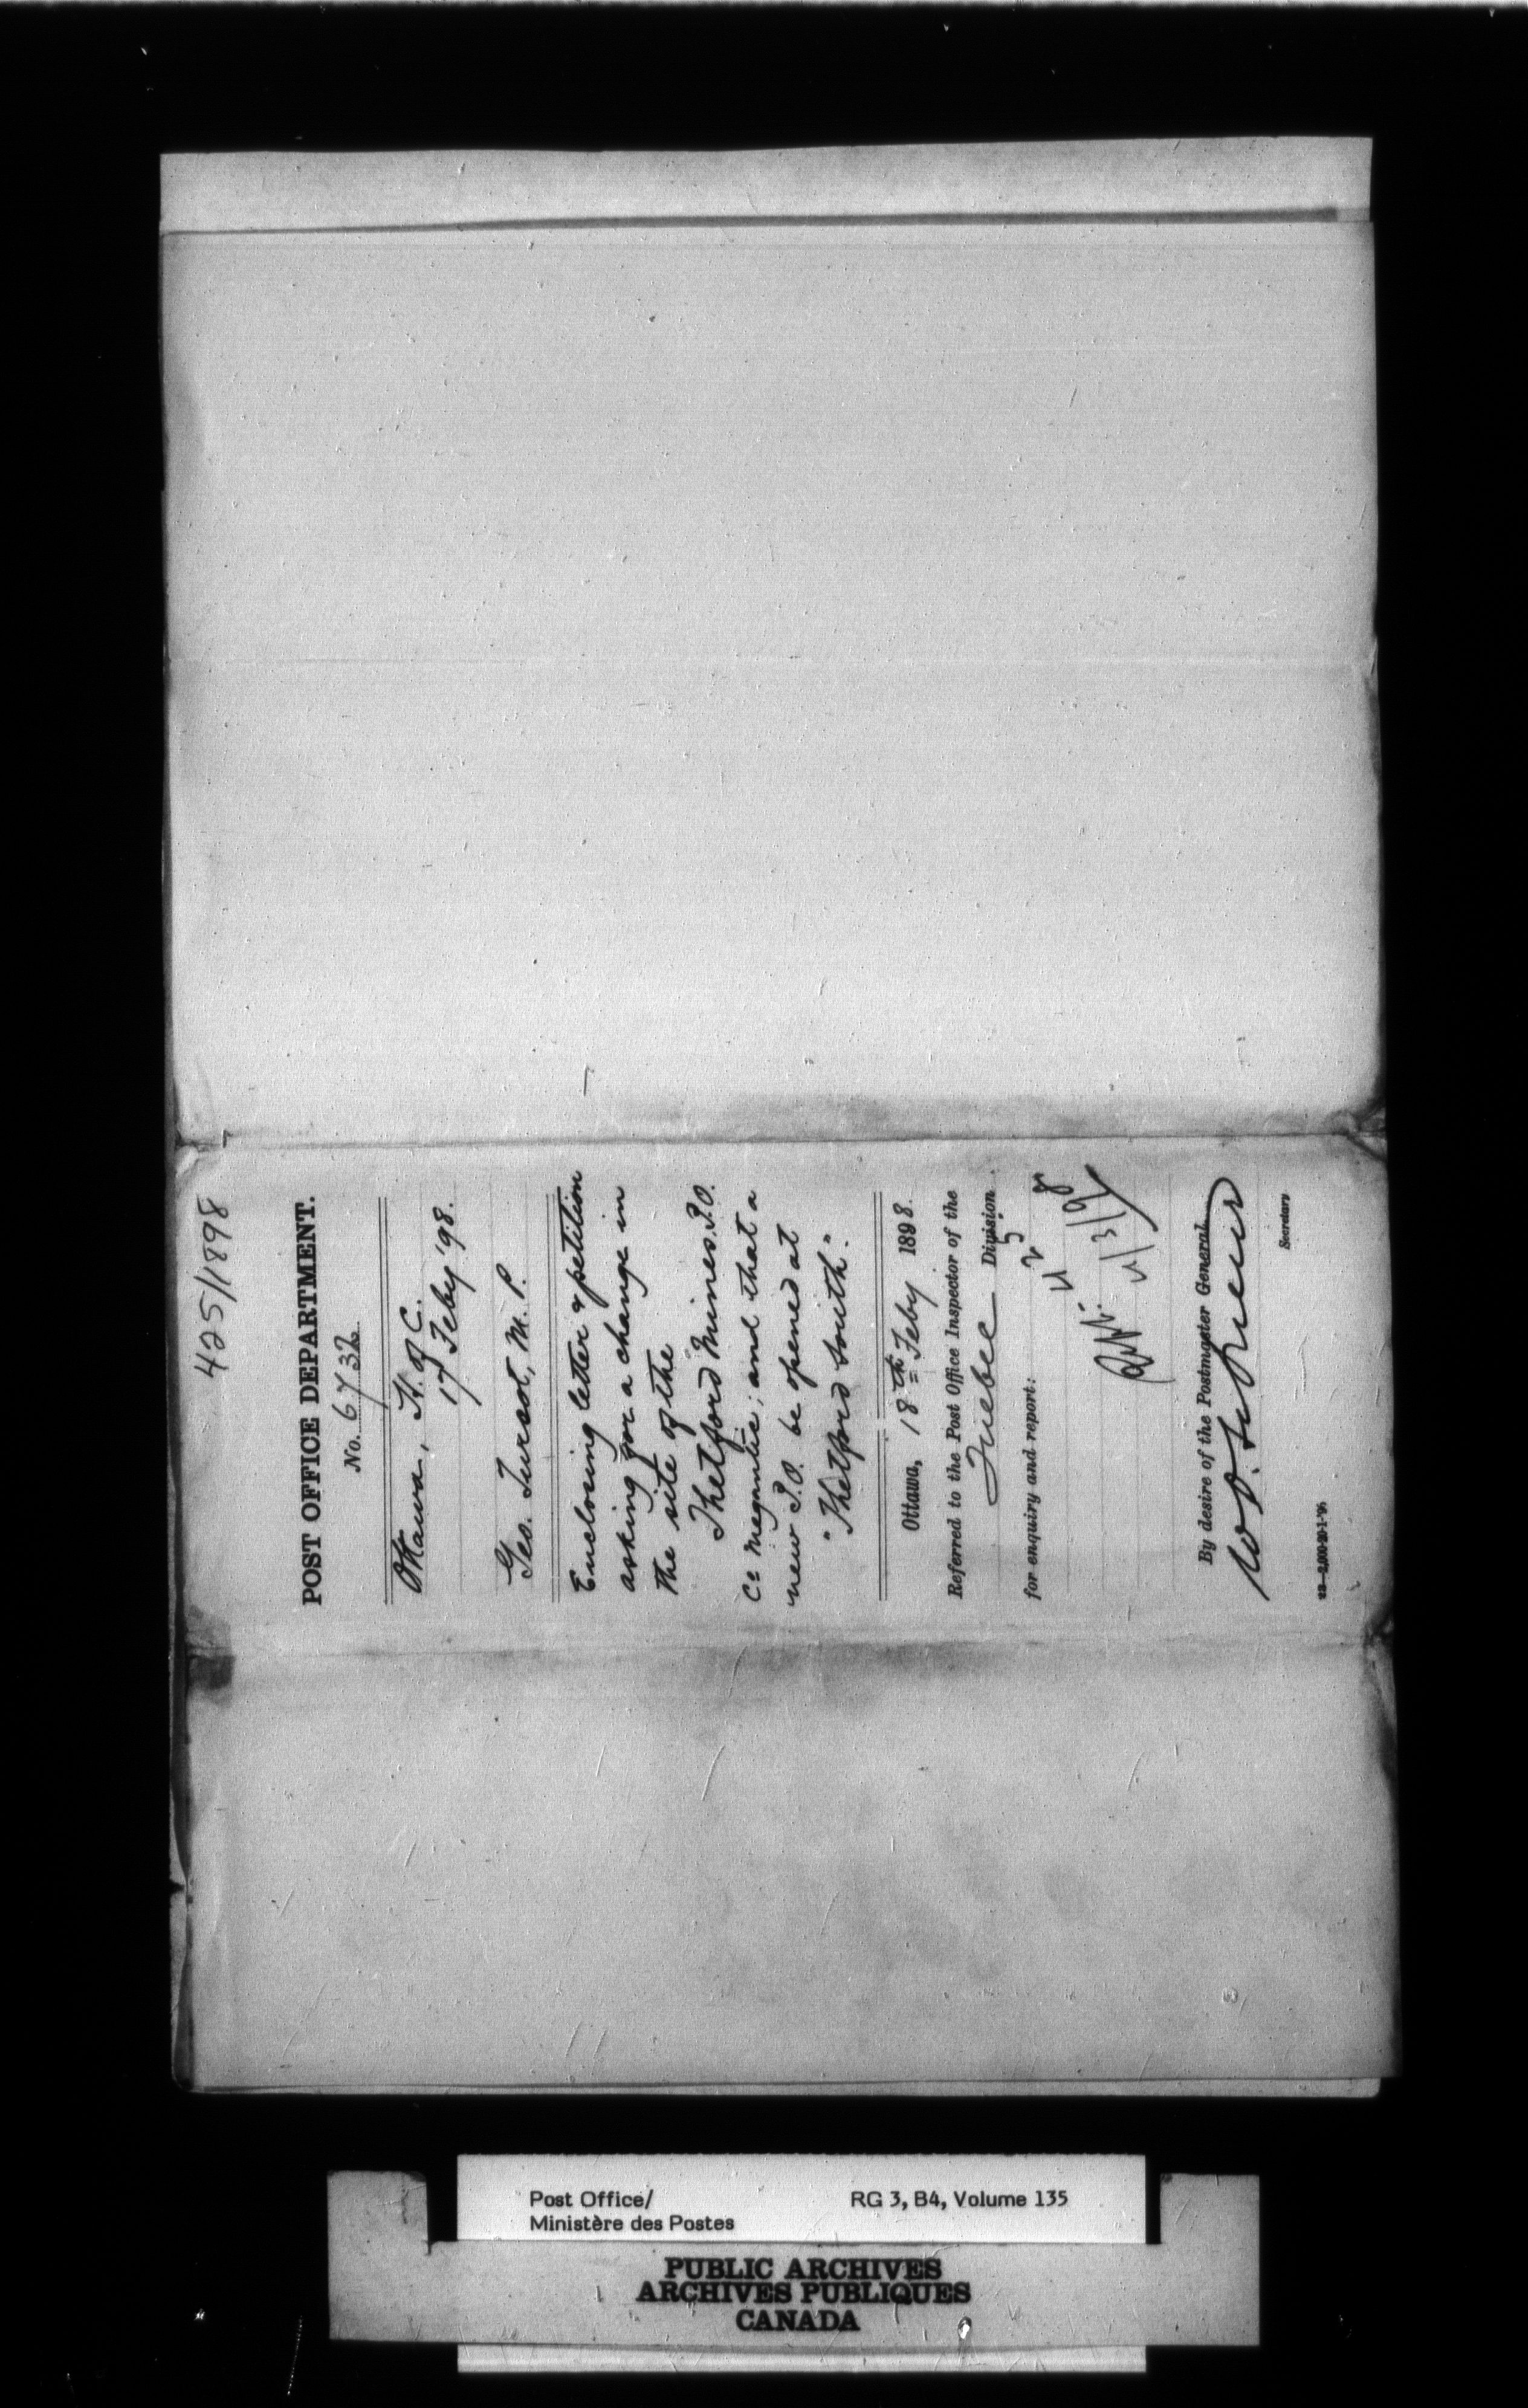 425/1898
POST OFFICE DEPARTMENT.
No. 6732
Ottawa, H. of C.
17 Feby '98.
Geo. Turcot, M. P.
Enclosing letter & petition
asking for a change in
the site of the
Thetford Mines, P.O.
Co Megantic; and that a
new P.O. be opened at
"Thetford South".
Ottawa, 18th Feby 1898.
Referred to the Post Office Inspector of the
Quebec Division
for enquiry and report:
By desire of the Postmaster General,
Secretary
Post Office/
Ministère des Postes
RG 3, B4, Volume 135
PUBLIC ARCHIVES
ARCHIVES PUBLIQUES
CANADA